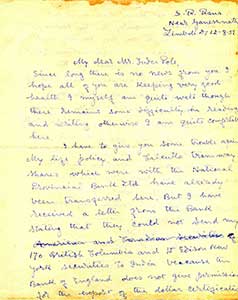 S. R. Rana
Near
Limbdi 12-8-51
My Dear Mr. Tudor Pole,
Since long there is no news from you I
hope all of you are keeping very good
health. I myself am quite well though
there remains some difficulty in reading
and writing otherwise I am quite
here.
I have to give you some trouble again
My life policy and Calcutta tramway
shares which were with the National
Provincial Bank Ltd have already
been transferred here. But I have
received a letter from the Bank
stating that they could not send my
American and Canadian securities
170 British Columbia and 15 Edison New
york securities to India because the
Bank of England does not give permission
for the export of the dollar certificates